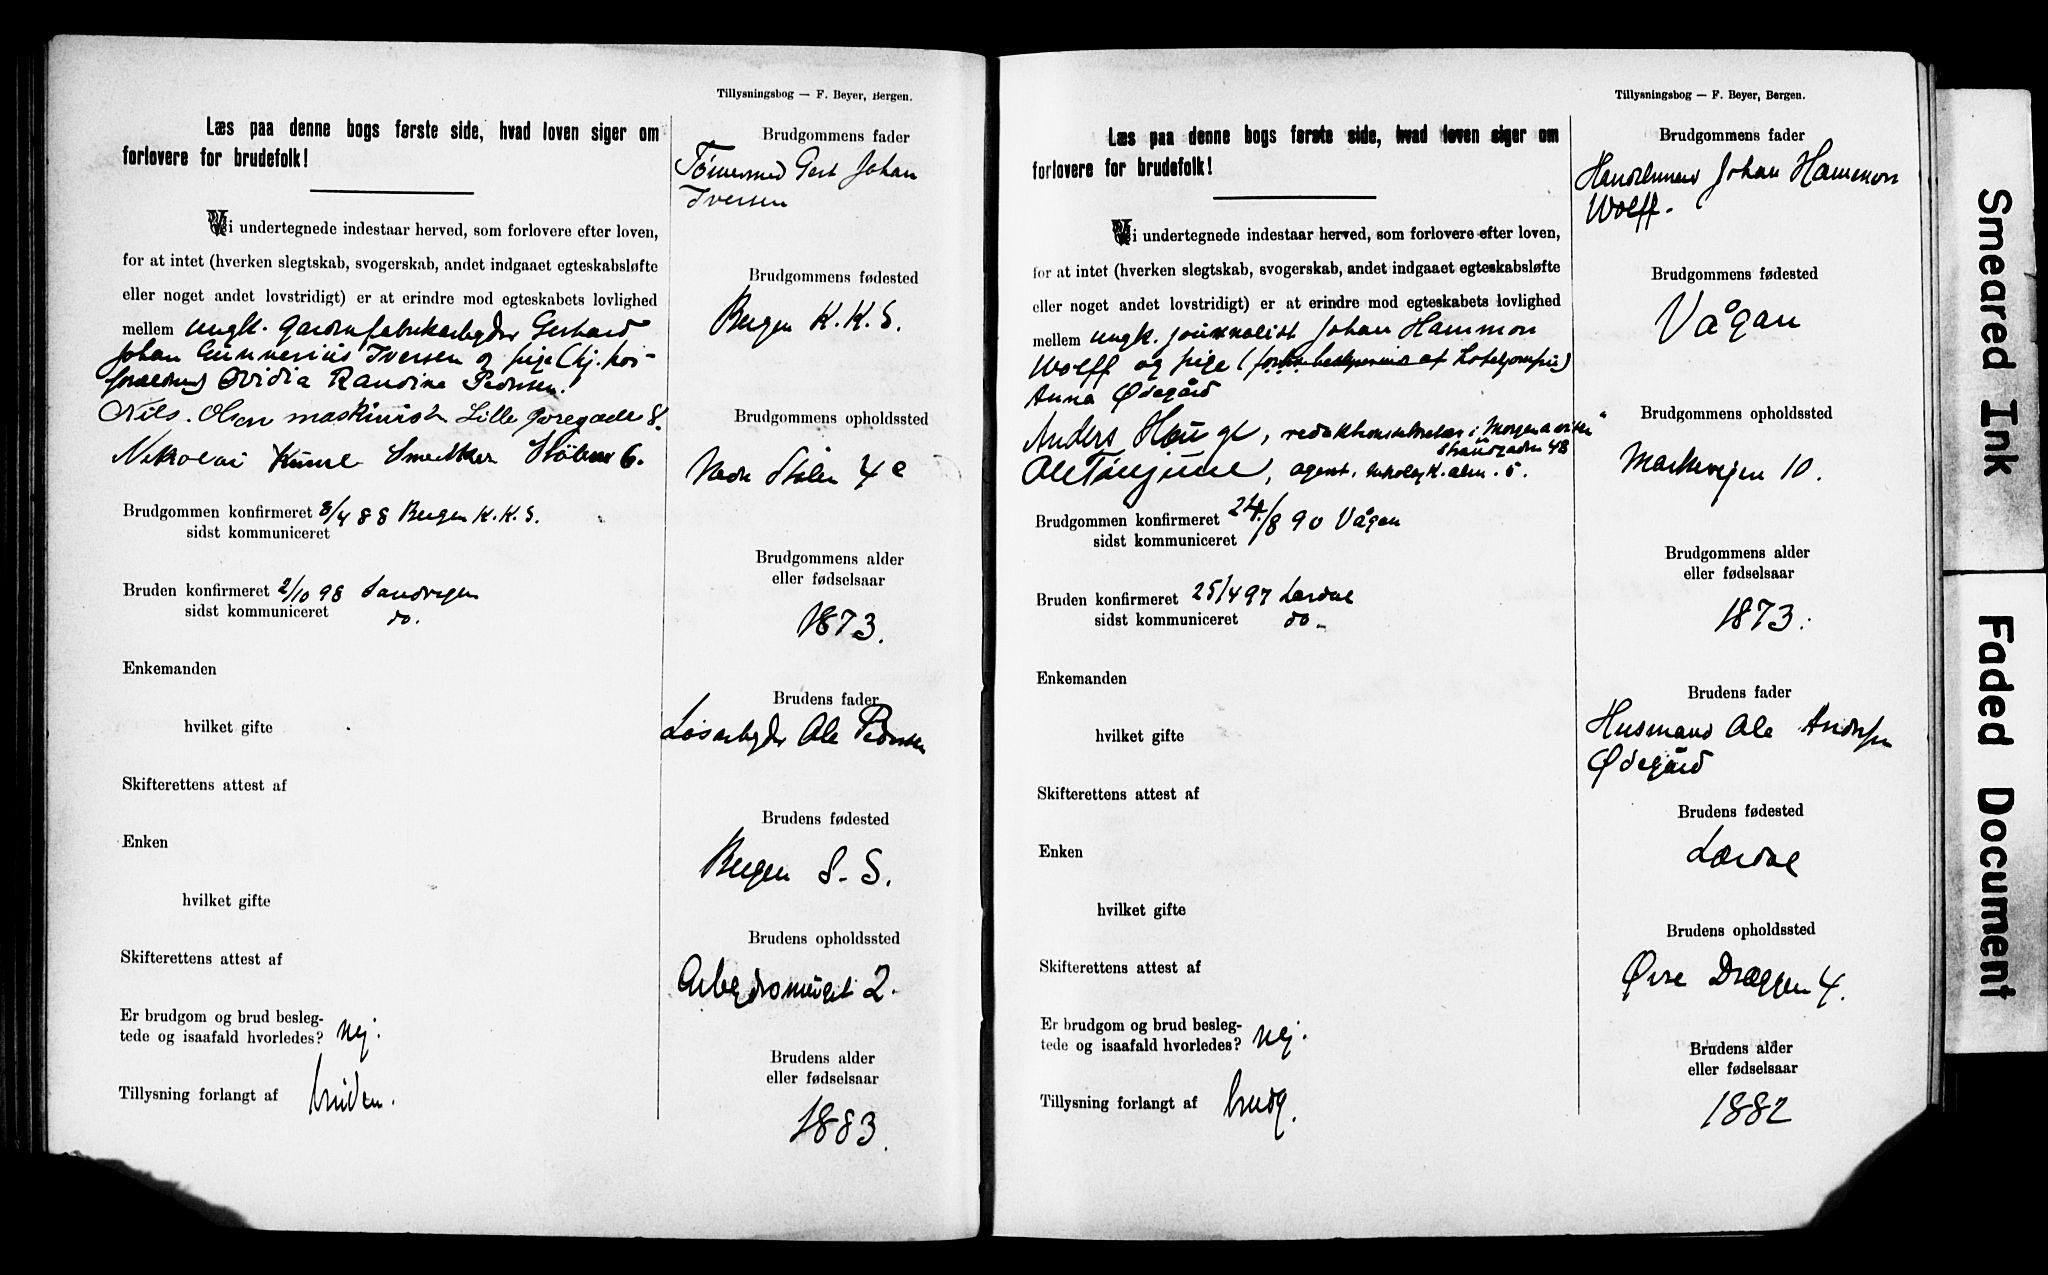 Tillysningsbog — F. Beyer, Bergen.
Læs paa denne bogs første side, hvad loven siger om
forlovere for brudefolk!
Vi undertegnede indestaar herved, som forlovere efter loven,
for at intet (hverken slegtskab, svogerskab, andet indgaaet egteskabsløfte
eller noget andet lovstridigt) er at erindre mod egteskabets lovlighed
mellem ungk. garnfabrikarbeyder Gerhard
Johan Gunnerius Iversen og pige (hj. hos
forældre) Ovidia Randine Pedersen.
Nils. Olsen maskinist Lille 8.
Nikolai Smedker Stølen 6.
Brudgommen konfirmeret 8/4 88 Bergen K.K.S.
sidst kommuniceret
Bruden konfirmeret 2/10 98 Sandvigen
sidst kommuniceret do.
Enkemanden
hvilket gifte
Skifterettens attest af
Enken
hvilket gifte
Skifterettens attest af
Er brudgom og brud besleg-
tede og isaafald hvorledes? Nej.
Tillysning forlangt af bruden.
Brudgommens fader
Tømermd Gert Johan
Iversen
Brudgommens fødested
Bergen K.K.S.
Brudgommens opholdssted
Nedr Stølen 4
Brudgommens alder
eller fødselsaar
1873.
Brudens fader
Løsarbeyder Ole Pedersen
Brudens fødested
Bergen S. S.
Brudens opholdssted
2.
Brudens alder
eller fødselsaar
1883.
Tillysningsbog — F. Beyer, Bergen.
Læs paa denne bogs første side, hvad loven siger om
forlovere for brudefolk!
Vi undertegnede indestaar herved, som forlovere efter loven,
for at intet (hverken slegtskab, svogerskab, andet indgaaet egteskabsløfte
eller noget andet lovstridigt) er at erindre mod egteskabets lovlighed
mellem ungk. journalist Johan Hammon
Wolff og pige ( af Hoteljomfru)
Anna Ødegård
Anders Hauge, i "Morgenavisen"
Strandgaden 48
Ole Tønjum, agent, 5.
Brudgommen konfirmeret 24/8 90 Vågan
sidst kommuniceret
Bruden konfirmeret 25/4 97 Lærdal
sidst kommuniceret do.
Enkemanden
hvilket gifte
Skifterettens attest af
Enken
hvilket gifte
Skifterettens attest af
Er brudgom og brud besleg-
tede og isaafald hvorledes? Nej.
Tillysning forlangt af brudg.
Brudgommens fader
Handelsmand Johan Hammon
Wolff.
Brudgommens fødested
Vågan
Brudgommens opholdssted
Markevejen 10.
Brudgommens alder
eller fødselsaar
1873.
Brudens fader
Husmand Ole Andersen
Ødegård
Brudens fødested
Lærdal
Brudens opholdssted
Øvre Dræggen 4.
Brudens alder
eller fødselsaar
1882
Smeared Ink
Faded Document